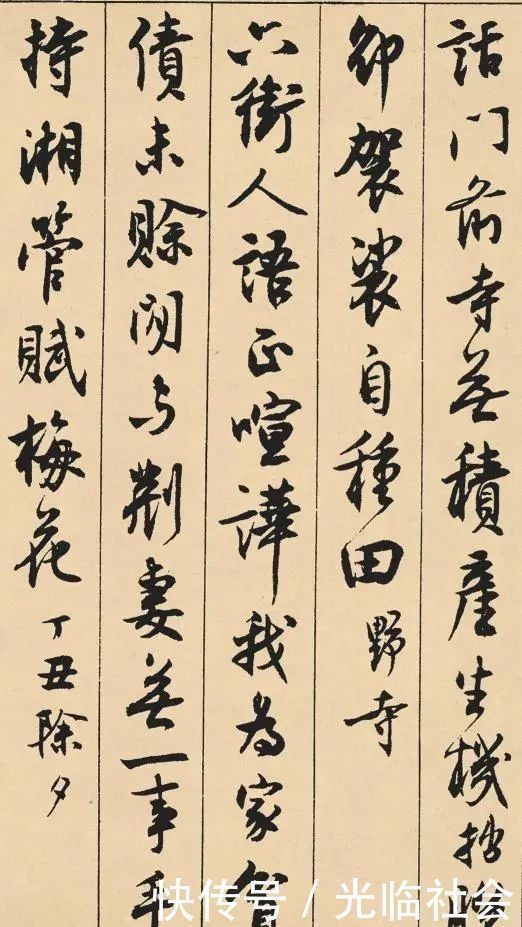 話门前寺無積產生機
卸袈裟自種田 野寺
六街人語正喧譁我為家
債未賒閒与荆妻無一事
持湘管賦梅花 丁丑除夕
快传号 / 光临社会